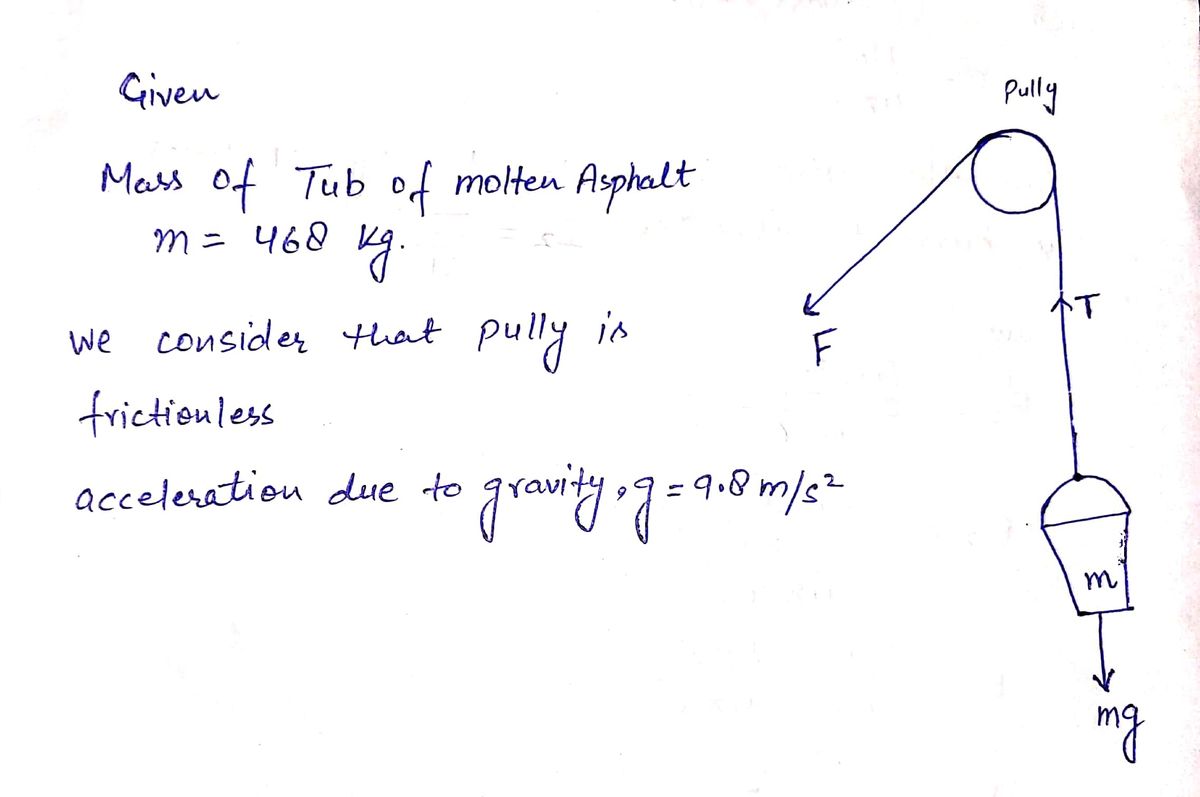 Given
Pully
Mass of Tub of molten Asphalt
m = 468 kg.
We consider that pully is
frictionless
acceleration due to gravity, g = 9.8 m/s²
F
T
m
mg